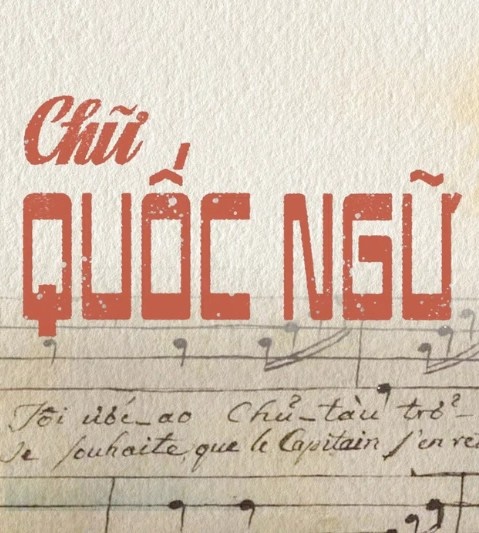 Chữ
QUỐC NGỮ
Tôi ước_ao Chủ_tàu trở_
Je souhaite, que le Capitain s'en